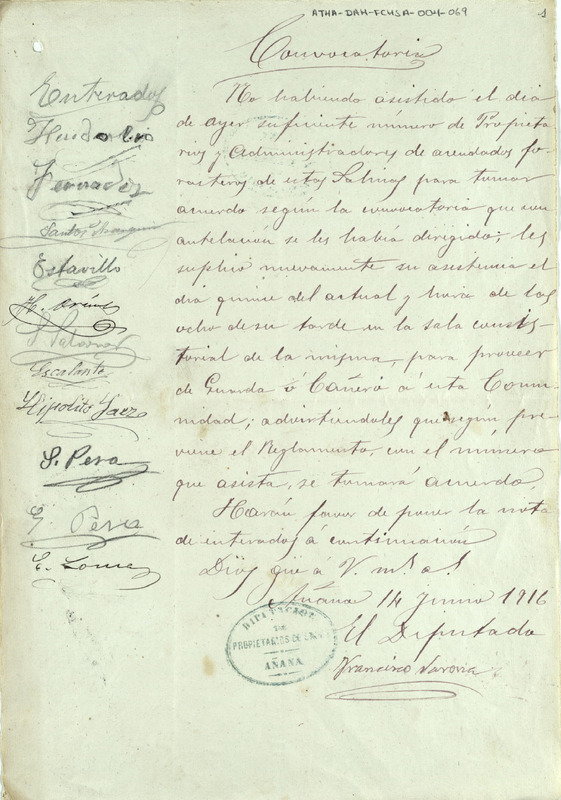 ATHA-DAH-FCHSA-004-069
1
Convocatoria
No habiendo asistido el dia
de ayer suficiente número de Propieta
rios y Administradores de arendados fo-
rasteros de estas Salinas para tomar
acuerdo según la convocatoria que con
antelación se les había dirigido; les
suplico nuevamente su asistencia el
dia quince del actual y hora de las
ocho de su tarde en la sala consis-
torial de la misma, para proveer
de Guarda ó Cañero á esta Comu-
nidad; advirtiendoles que según pre-
viene el Reglamento, con el número
que asista, se tomará acuerdo.
Harán favor de poner la nota
de enterados á continuación
Dios güe á V. m.s a.s
Añana 14 Junio 1916
El Diputado
Francisco
DIPUTACION
DE
PROPIETARIOS DE
AÑANA
Enterados
Estavillo
Escalante
Hipolito Saez
S. Pera